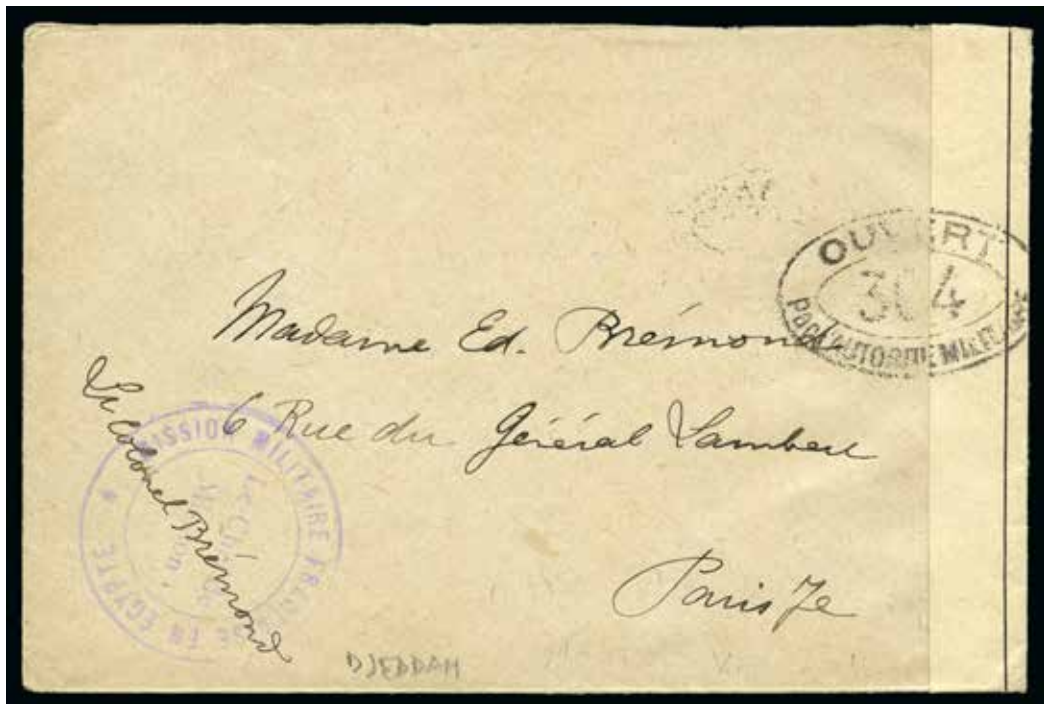 OUVERT
304
PAR L'AUTORITE MILITAIRE
Madame Ed. Brémond
6 Rue du Général Lambert
Paris 7e
Le Colonel Brémond
MISSION MILITAIRE FRANÇAISE EN EGYPTE
Le Chef de
Mission,
DJEDDAH